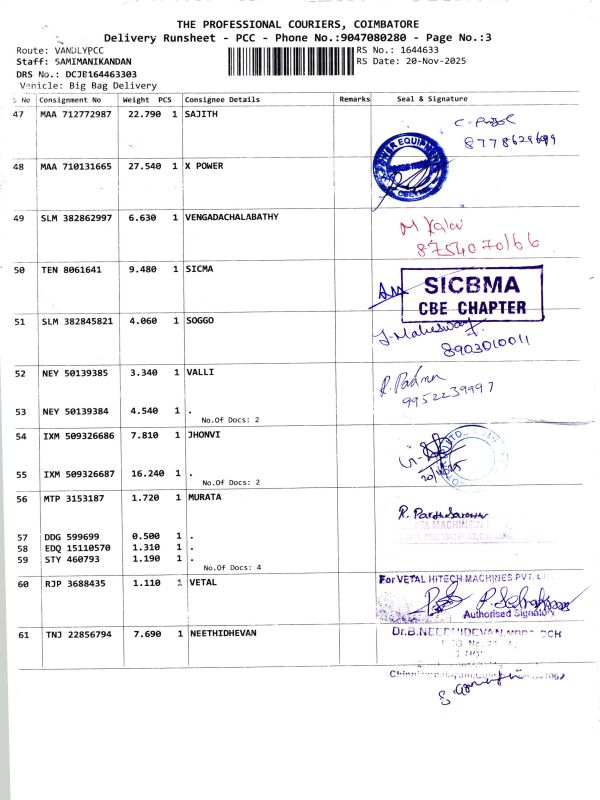 THE PROFESSIONAL COURIERS, COIMBATORE
Delivery Runsheet - PCC - Phone No.:9047080280 - Page No.:3
Route: VANDLYPCC
RS No.: 1644633
Staff: SAMIMANIKANDAN
RS Date: 20-Nov-2025
DRS No.: DCJE164463303
Vehicle: Big Bag Delivery
S No Consignment No Weight PCS Consignee Details Remarks Seal & Signature
47 MAA 712772987 22.790 1 SAJITH
8778629699
48 MAA 710131665 27.540 1 X POWER
POWER EQUIPMENT
49 SLM 382862997 6.630 1 VENGADACHALABATHY
8754070166
50 TEN 8061641 9.480 1 SICMA
SICBMA
CBE CHAPTER
51 SLM 382845821 4.060 1 SOGGO
J. Maheswary
8903010011
52 NEY 50139385 3.340 1 VALLI
R. Padma
9952239997
53 NEY 50139384 4.540 1 .
No.Of Docs: 2
54 IXM 509326686 7.810 1 JHONVI
55 IXM 509326687 16.240 1 .
No.Of Docs: 2
56 MTP 3153187 1.720 1 MURATA
57 DDG 599699 0.500 1 .
58 EDQ 15110570 1.310 1 .
59 STY 460793 1.190 1 .
No.Of Docs: 4
60 RJP 3688435 1.110 1 VETAL
For VETAL HITECH MACHINES PVT. LTD
Authorised Signatory
61 TNJ 22856794 7.690 1 NEETHIDHEVAN